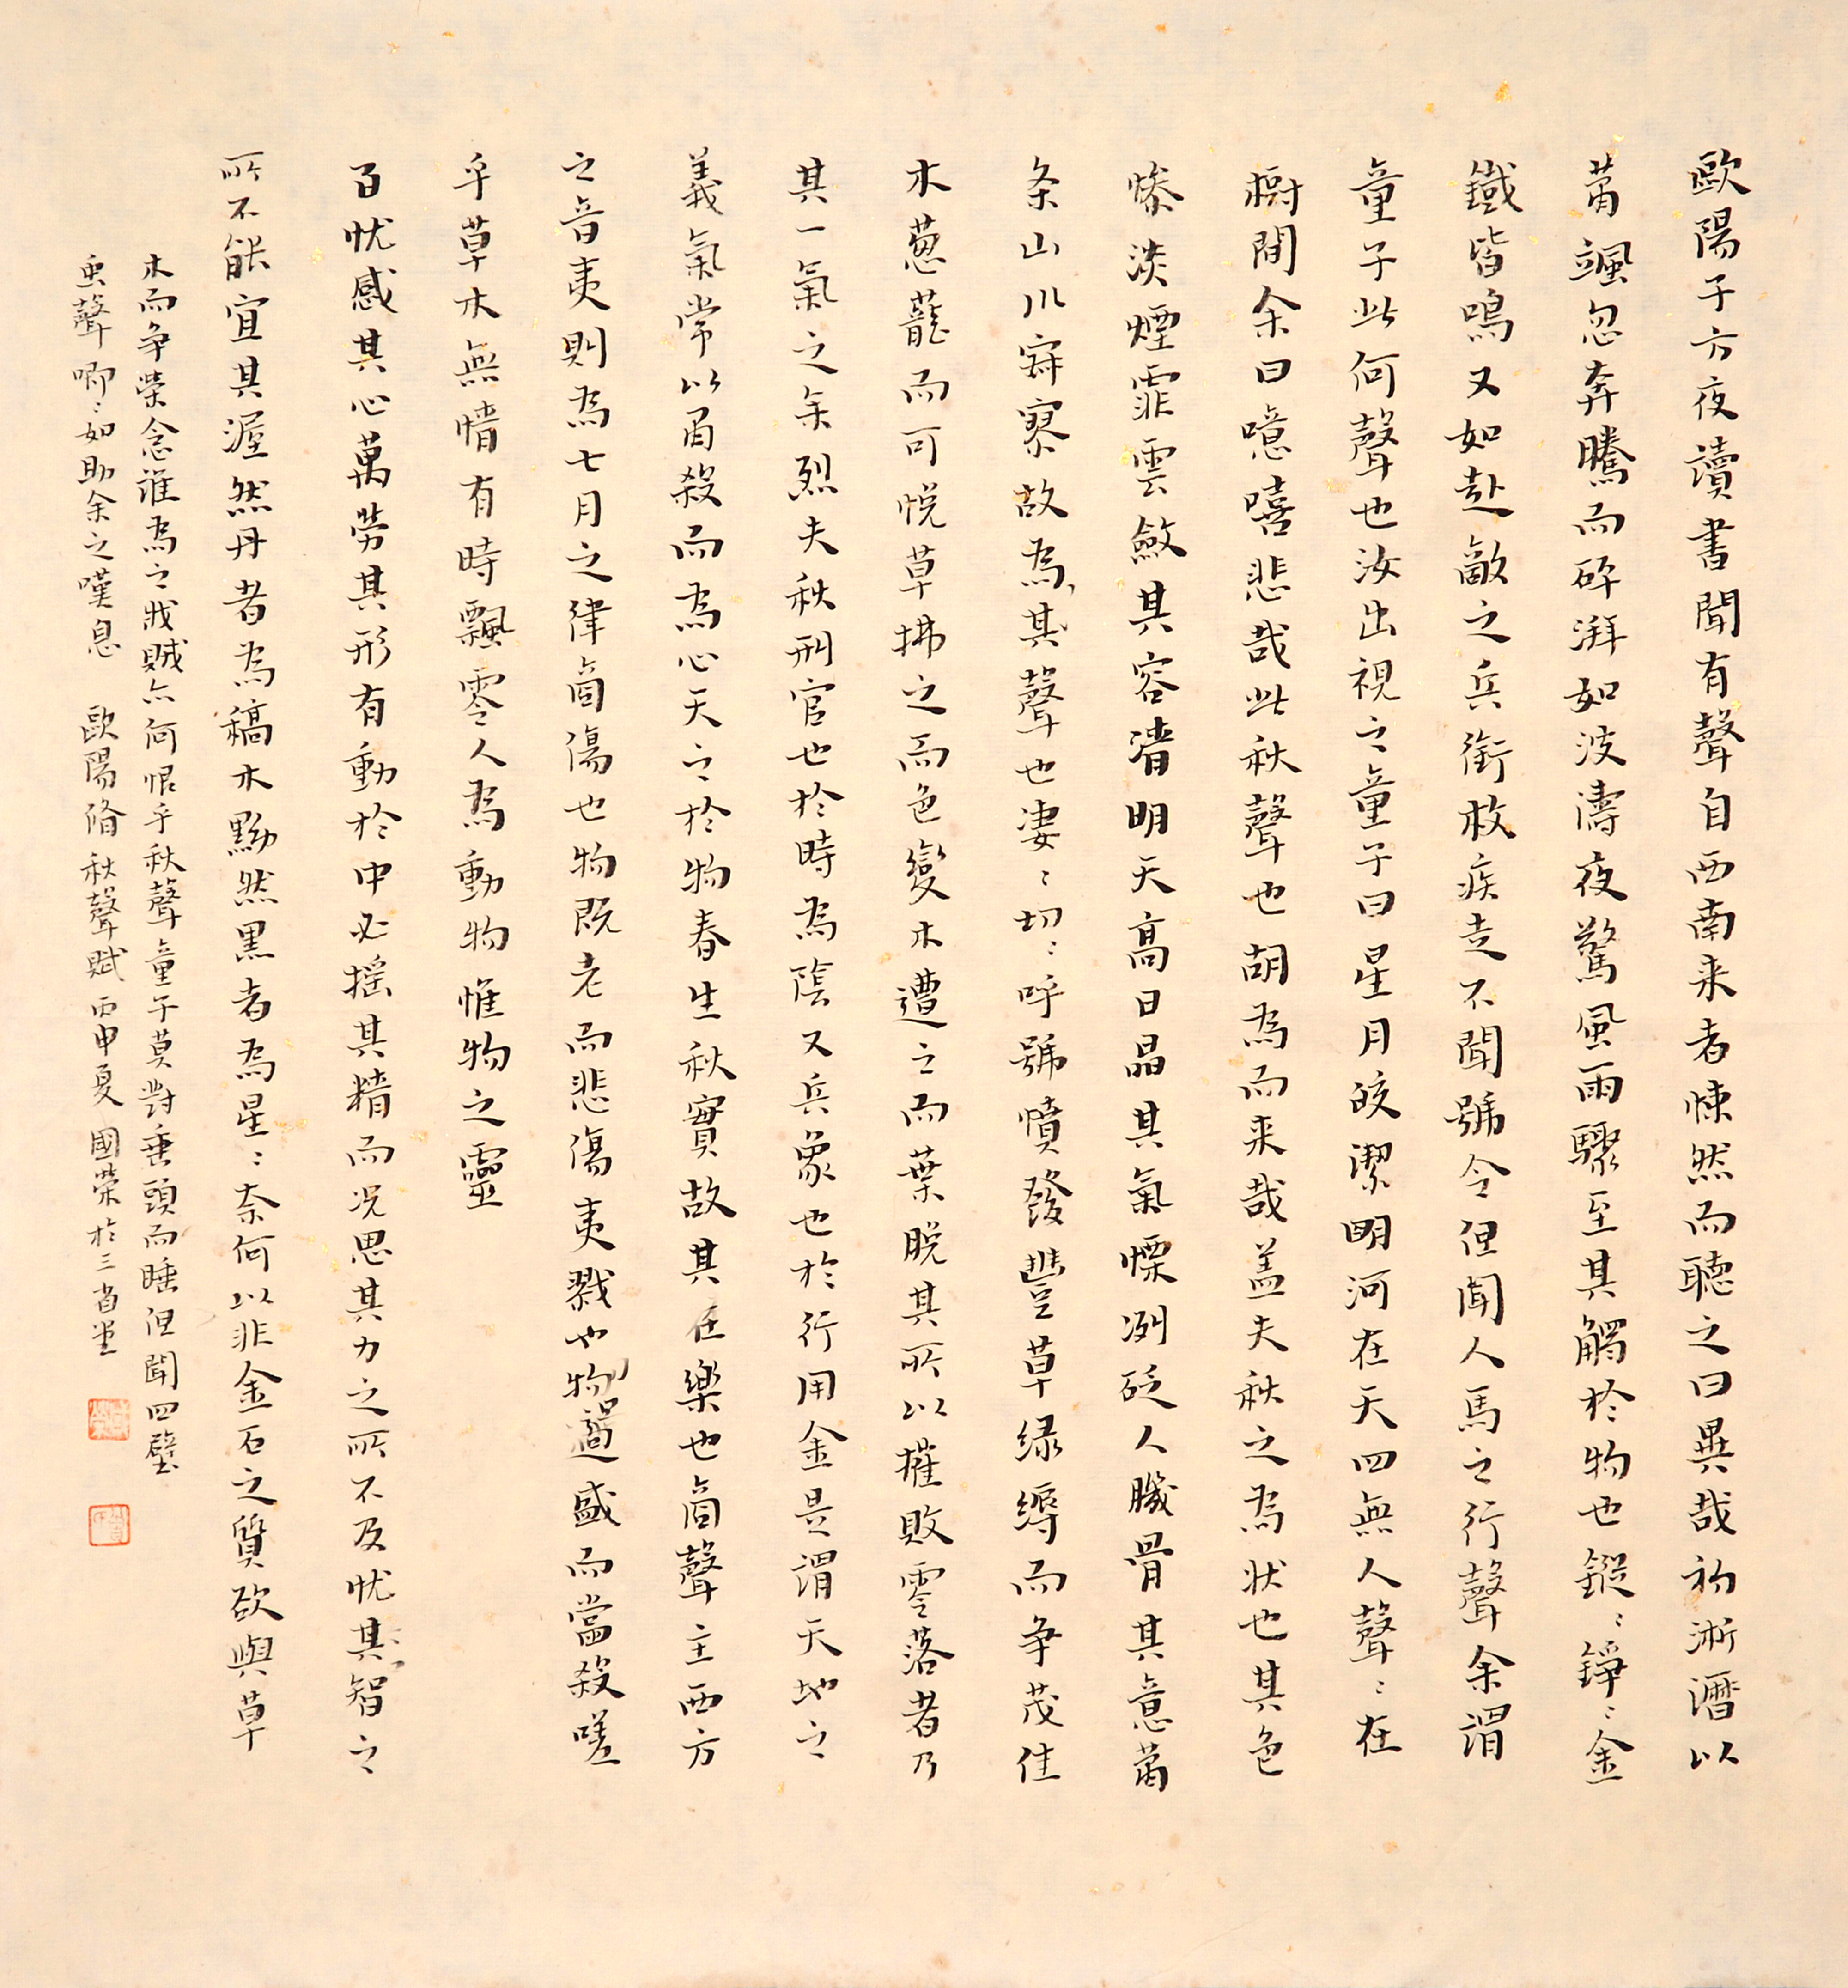 歐陽子方夜讀書聞有聲自西南来者悚然而聽之曰異哉初淅瀝以
蕭颯忽奔騰而砰湃如波濤夜驚風雨驟至其觸於物也鏦〻錚〻金
鐵皆鳴又如赴敵之兵銜枚疾走不聞號令但聞人馬之行聲余謂
童子此何聲也汝出視之童子曰星月皎潔明河在天四無人聲〻在
樹間余曰噫嘻悲哉此秋聲也胡為而来哉盖夫秋之為状也其色
慘淡煙霏雲斂其容清明天高日晶其氣慄冽砭人肌骨其意蕭
条山川寂寥故為其聲也凄〻切〻呼號憤發豐草绿縟而争茂佳
木葱蘢而可悦草拂之而色變木遭之而葉脱其所以摧敗零落者乃
其一氣之余烈夫秋刑官也於時為陰又兵象也於行用金是謂天地之
義氣常以肅殺而為心天之於物春生秋實故其在樂也商聲主西方
之音夷則為七月之律商傷也物既老而悲傷夷戮也物過盛而當殺嗟
乎草木無情有時飄零人為動物惟物之靈
百忧感其心萬勞其形有動於中必摇其精而况思其力之所不及忧其智之
所不能宜其渥然丹者為槁木黝然黑者為星〻奈何以非金石之質欲與草
木而争榮念誰為之戕賊亦何恨乎秋聲童子莫對垂頭而睡但聞四壁
虫聲唧〻如助余之嘆息 歐陽脩秋聲賦 丙申夏 國榮於三省堂